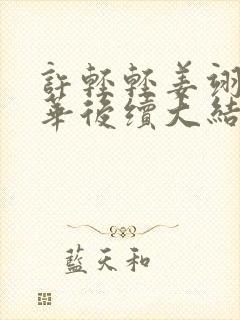 許輕輕姜翊
華後續大結
藍天和